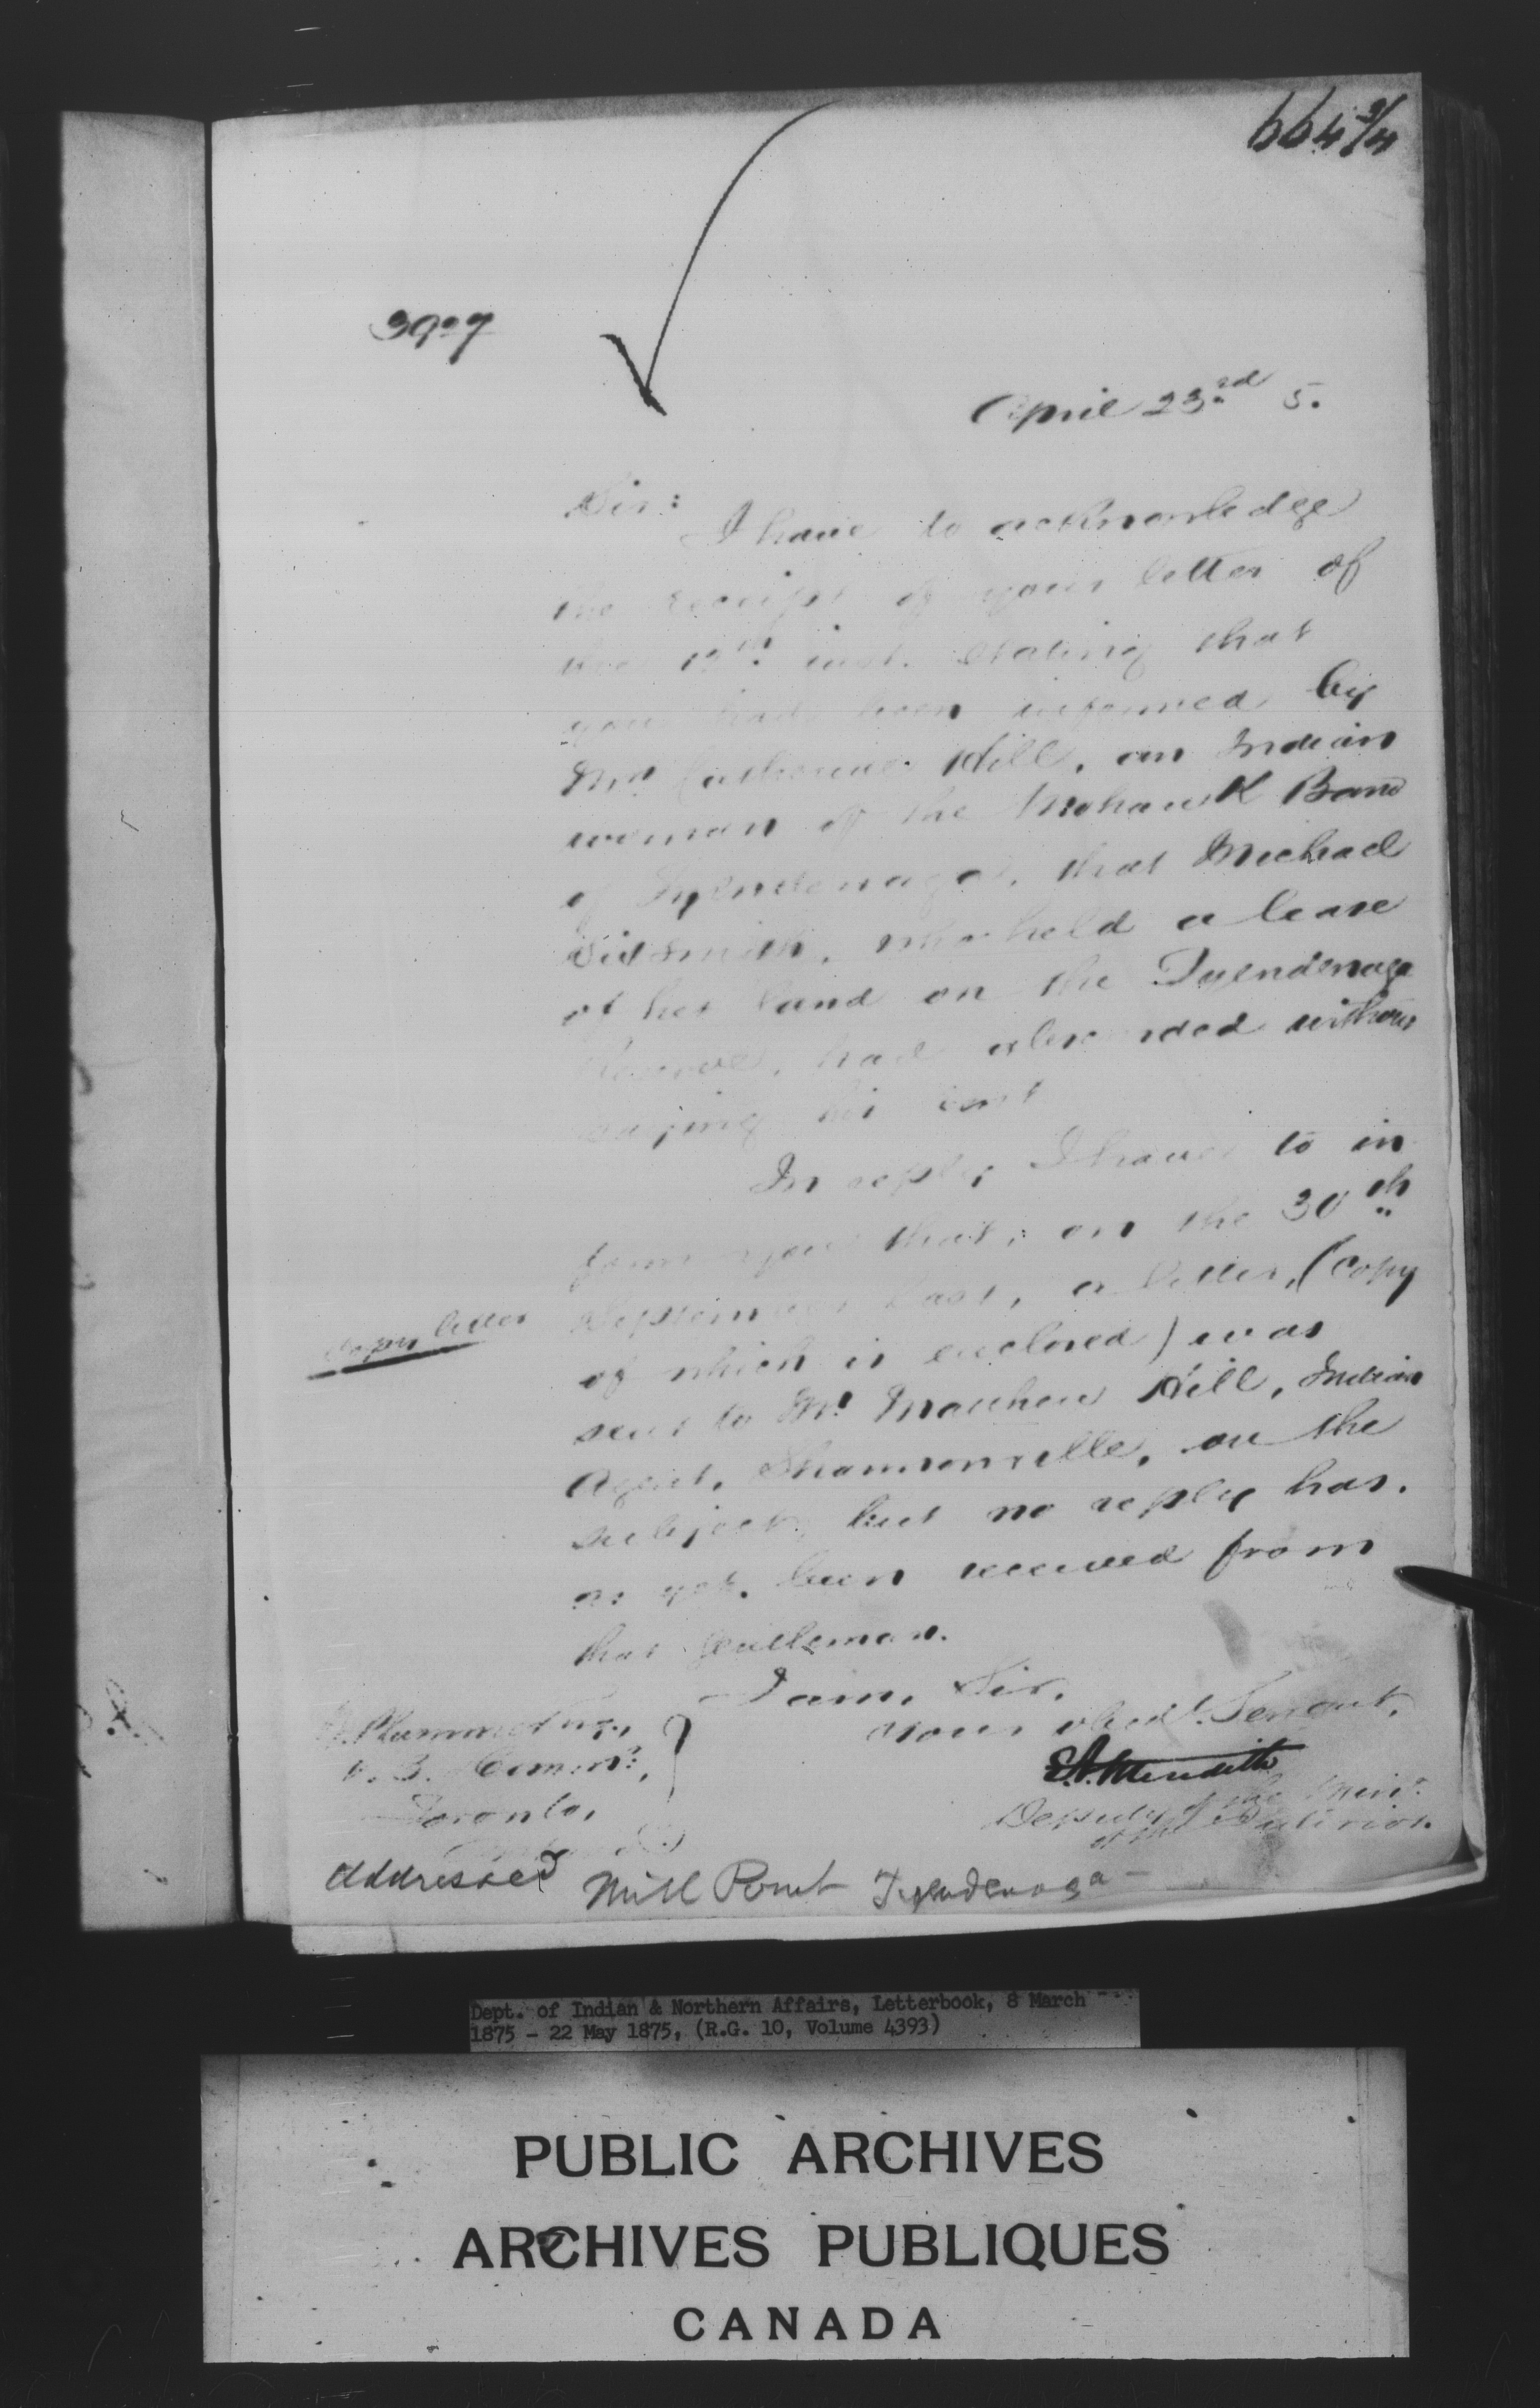 664 3/4
3907
April 23rd 5.
Sir:
I have to acknowledge
the receipt of your letter of
the 12th inst. stating that
you had been informed by
Mrs Catherine Hill, an Indian
woman of the Mohawk Band
of Tyendenaga, that Michael
who held a lease
of her land on the Tyendenaga
Reserve, had absconded without
paying his rent
In reply I have to in
form you that, on the 30th
September last, a letter, (copy
of which is enclosed) was
sent to Mr Matthew Hill, Indian
Agent, Shannonville, on the
subject, but no reply has.
as yet, been received from
that gentleman.
Copy letter
I am, Sir,
Your obedt. Servant,
E.A. Meredith
Deputy of the Minr.
of the Interior.
Plummer Esq.,
Toronto,
Addressed Mill Point Tyendenaga -
Dept. of Indian & Northern Affairs, Letterbook, 8 March
1875 - 22 May 1875, (R.G. 10, Volume 4393)
PUBLIC ARCHIVES
ARCHIVES PUBLIQUES
CANADA